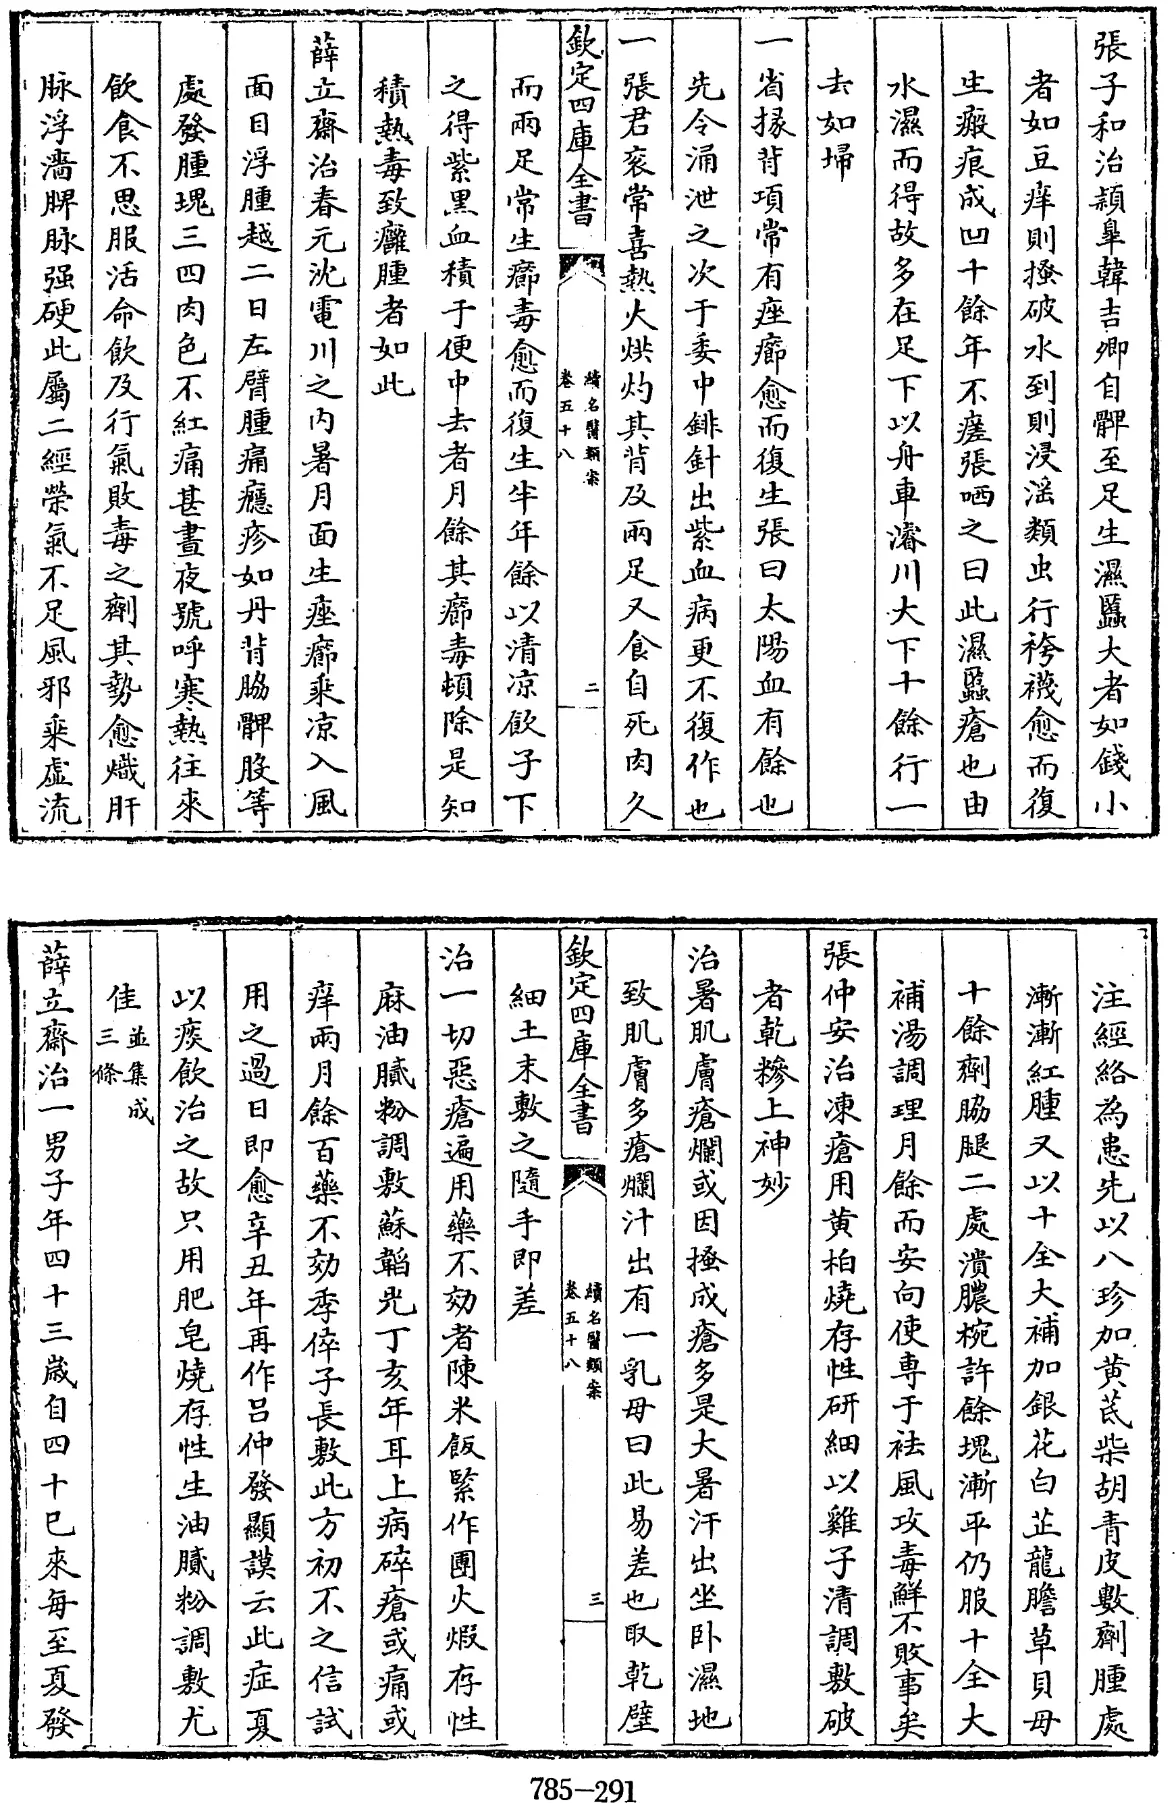 張子和治潁臯韓吉卿自髀至足生濕䘌大者如錢小
者如豆痒則搔破水到則浸淫類虫行袴襪愈而復
生瘢痕成凹十餘年不瘥張哂之曰此濕䘌瘡也由
水濕而得故多在足下以舟車濬川大下十餘行一
去如埽
一省掾背項常有痤癤愈而復生張曰太陽血有餘也
先令涌泄之次于委中銔針出紫血病更不復作也
一張君衮常喜熱火烘灼其背及兩足又食自死肉久
欽定四庫全書
續名醫類案
卷五十八
二
而兩足常生癤毒愈而復生半年餘以清凉飲子下
之得紫黒血積于便中去者月餘其癤毒頓除是知
積熱毒致癰腫者如此
薛立齋治春元沈電川之内暑月面生痤癤乘凉入風
面目浮腫越二日左臂腫痛癮疹如丹背脇髀股等
處發腫塊三四肉色不紅痛甚晝夜號呼寒熱往來
飲食不思服活命飲及行氣敗毒之劑其勢愈熾肝
脉浮濇脾脉强硬此屬二經榮氣不足風邪乘虚流
注經絡為患先以八珍加黄芪柴胡青皮數劑腫處
漸漸紅腫又以十全大補加銀花白芷龍膽草貝母
十餘劑脇腿二處潰膿椀許餘塊漸平仍服十全大
補湯調理月餘而安向使専于袪風攻毒鮮不敗事矣
張仲安治凍瘡用黄柏燒存性研細以雞子清調敷破
者乾糝上神妙
治暑肌膚瘡爛或因搔成瘡多是大暑汗出坐卧濕地
致肌膚多瘡爛汁出有一乳母曰此易差也取乾壁
欽定四庫全書
續名醫類案
卷五十八
三
細土末敷之隨手即差
治一切惡瘡遍用藥不効者陳米飯緊作團火煆存性
麻油膩粉調敷蘇韜光丁亥年耳上病碎瘡或痛或
痒兩月餘百藥不効季倅子長敷此方初不之信試
用之過日即愈辛丑年再作吕仲發顯謨云此症夏
以痰飲治之故只用肥皂燒存性生油膩粉調敷尤
佳並集成三條
薛立齋治一男子年四十三歲自四十巳來每至夏發
785—291